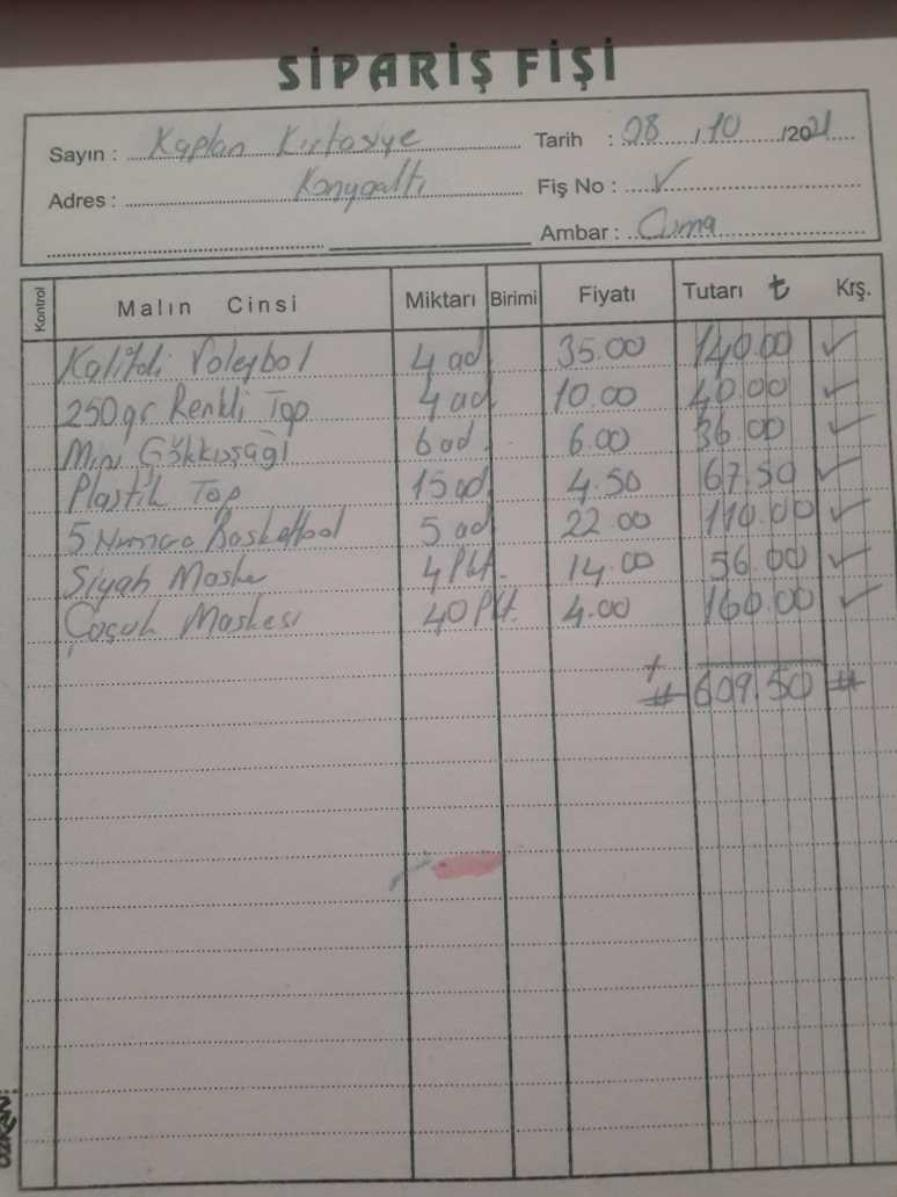 SİPARİŞ FİŞİ
Sayın : Kaplan Kırtasiye Tarih : 08 / 10 / 2021
Adres : Konyaaltı Fiş No : ✓
Ambar : Cuma
Kontrol Malın Cinsi Miktarı Birimi Fiyatı Tutarı ₺ Krş.
Kaliteli Voleybol 4 ad. 35.00 140.00 ✓
250 gr Renkli Top 4 ad. 10.00 40.00 ✓
Mini Gökkuşağı 6 ad. 6.00 36.00 ✓
Plastik Top 15 ad. 4.50 67.50 ✓
5 Numara Basketbol 5 ad. 22.00 110.00 ✓
Siyah Maske 4 Pkt. 14.00 56.00 ✓
Çocuk Maskesi 40 Pkt. 4.00 160.00 ✓
+
# 609.50 #